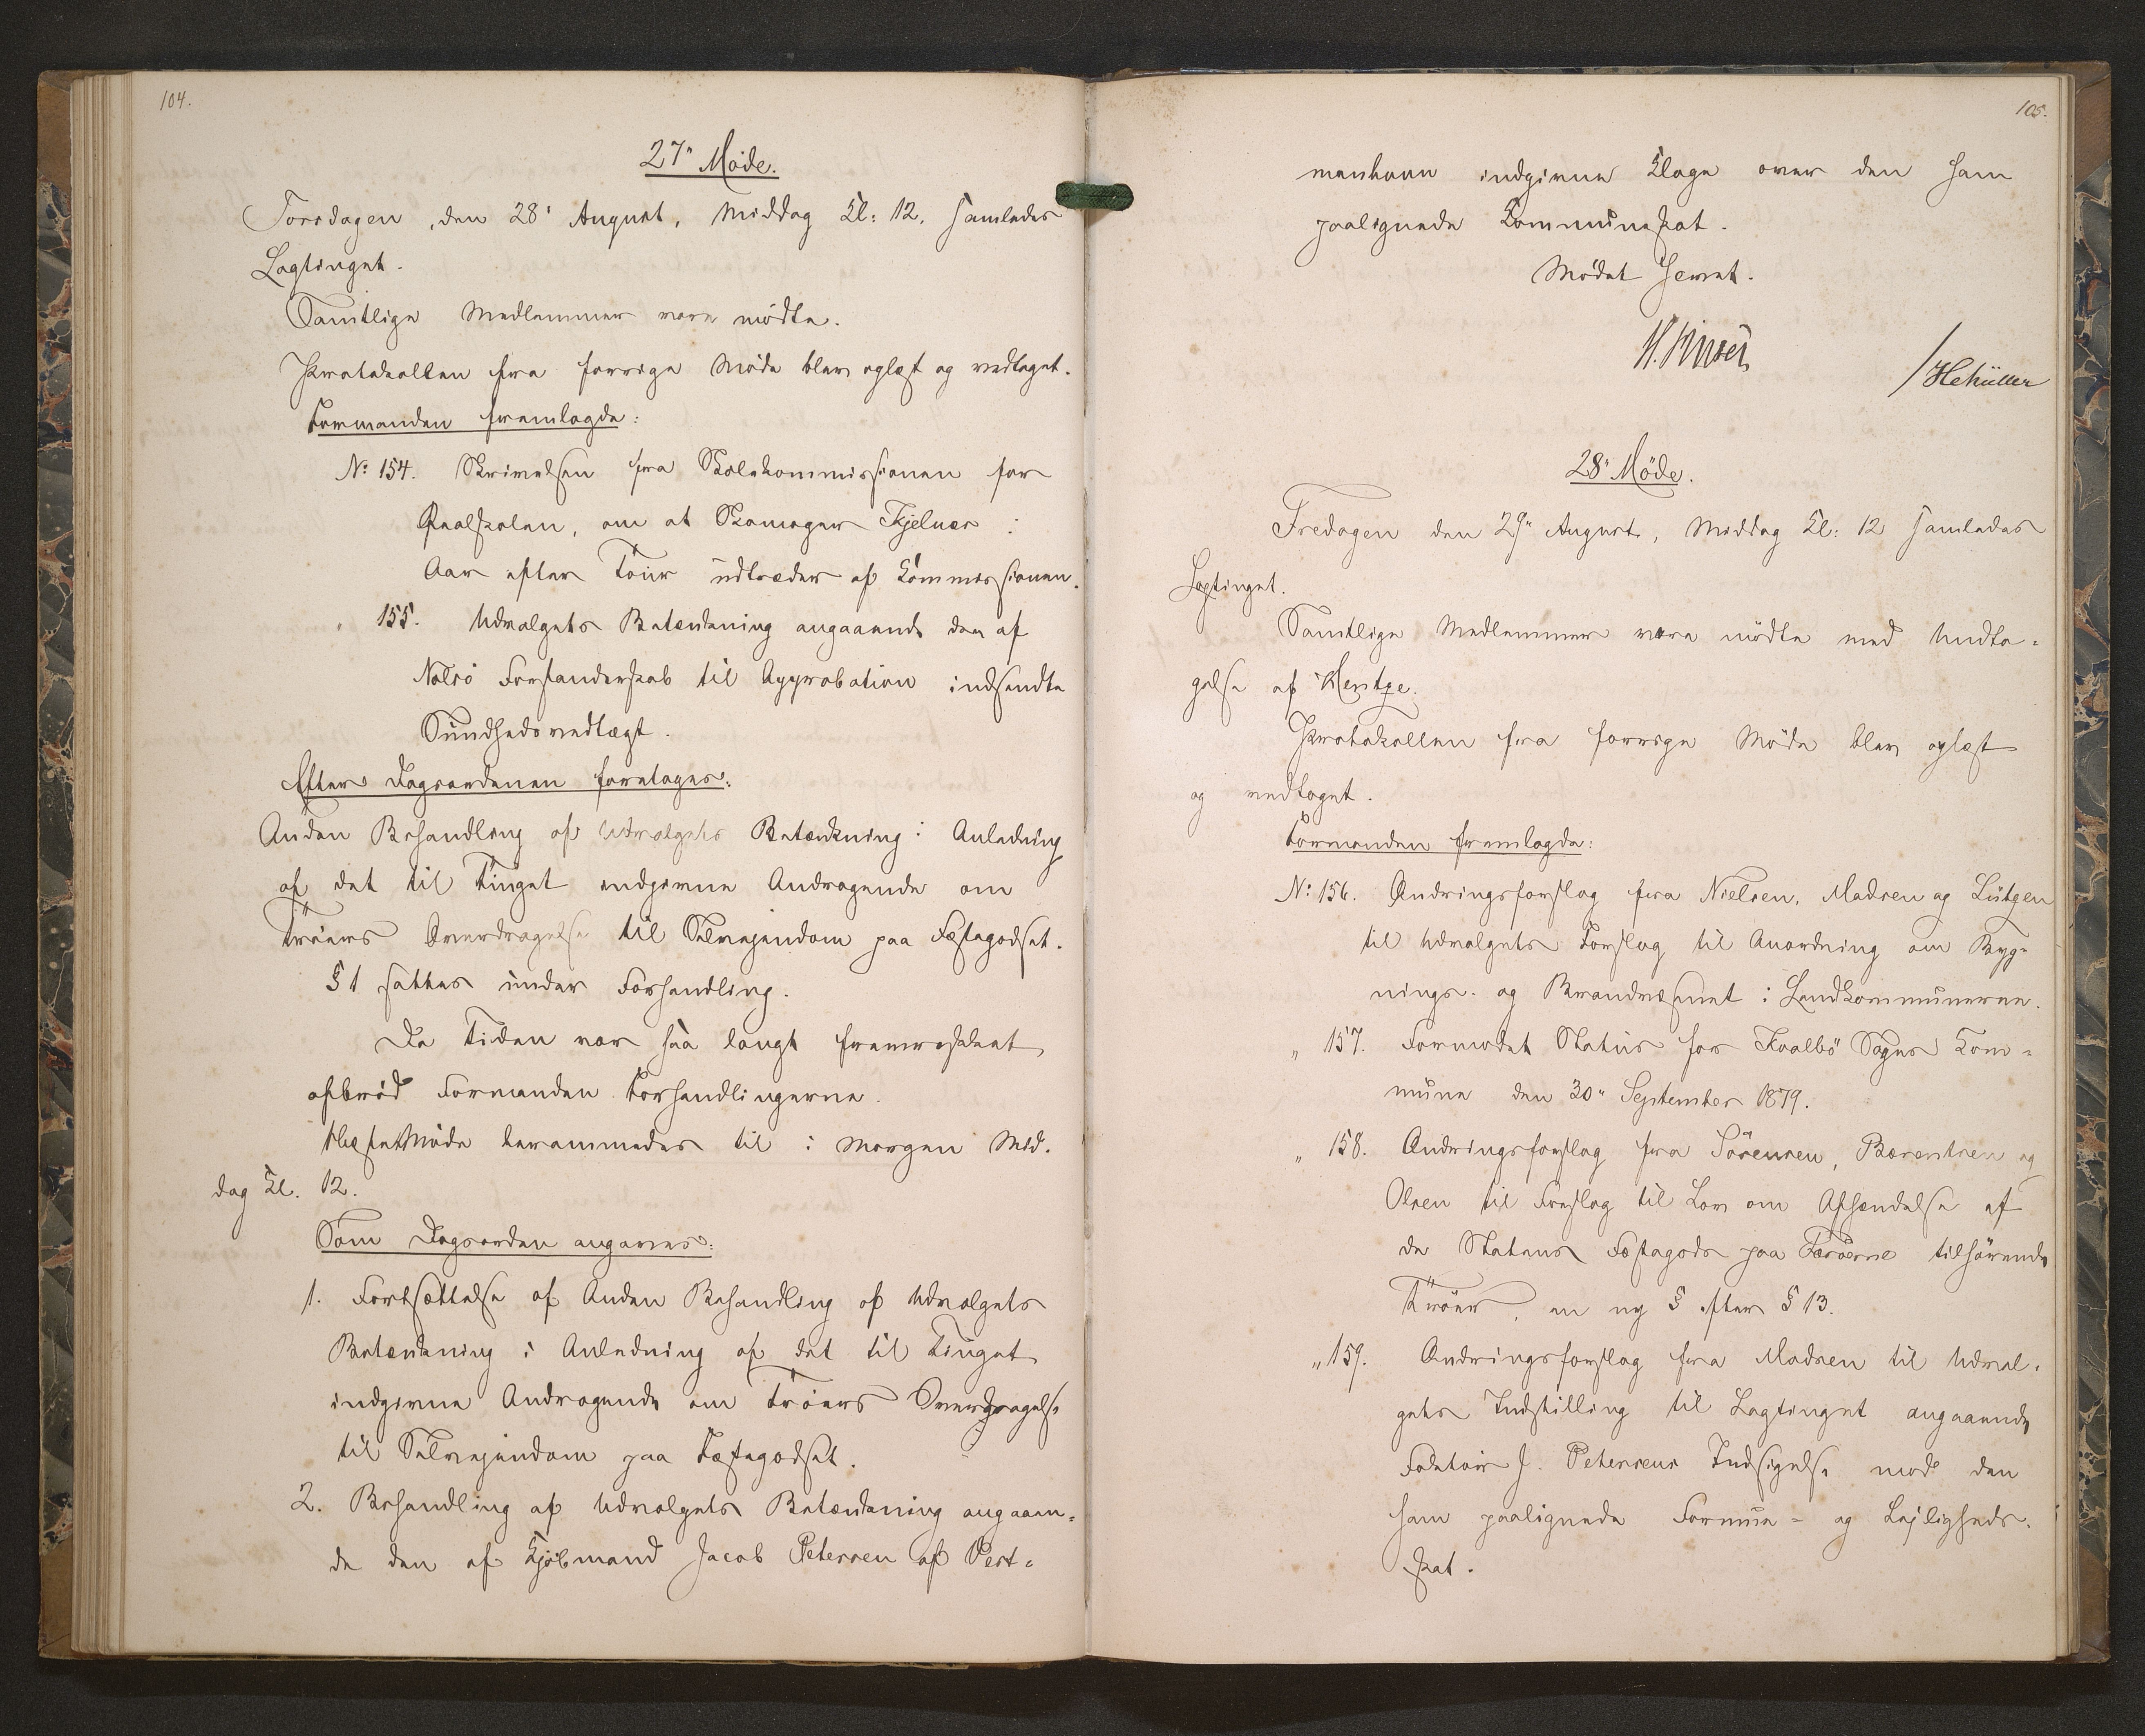 104.
27" Møde.
Torsdagen, den 28' August, Middag Kl: 12, samledes
Lagtinget.
Samtlige Medlemmer vare mødte.
Protokollen fra forrige Møde blev oplæst og vedtaget.
Formanden fremlagde:
No: 154. Skrivelsen fra Skolekommissionen for
Realskolen, om at Skomager Kjelnæs i
Aar efter Tour udtræder af Kommissionen.
" 155. Udvalgets Betænkning angaaende den af
Nolsø Forstanderskab til Approbation indsendte
Sundhedsvedtægt.
Efter Dagsordenen foretages:
Anden Behandling af Udvalgets Betænkning i Anledning
af det til Tinget indgivne Andragende om
Trøers Overdragelse til Selvejendom paa Fæstegodset.
§ 1 sattes under Forhandling.
Da Tiden var saa langt fremrykket
afbrød Formanden Forhandlingerne.
Næste Møde berammedes til i Morgen Mid-
dag Kl. 12.
Som Dagsorden angaves:
1. Fortsættelse af Anden Behandling af Udvalgets
Betænkning i Anledning af det til Tinget
indgivne Andragende om Trøers Overdragelse
til Selvejendom paa Fæstegodset.
2. Behandling af Udvalgets Betænkning angaaen-
de den af Kjøbmand Jacob Petersen af Vest-
105.
manhavn indgivne Klage over den ham
paalignede Kommuneskat.
Mødet hævet.
/HCMüller
28" Møde.
Fredagen den 29" August, Middag Kl: 12 samledes
Lagtinget.
Samtlige Medlemmer vare mødte med Undta-
gelse af Hentze.
Protokollen fra forrige Møde blev oplæst
og vedtaget.
Formanden fremlagde:
No: 156. Ændringsforslag fra Nielsen, Madsen og Lützen
til Udvalgets Forslag til Anordning om Byg-
nings- og Brandvæsenet i Landkommunerne.
" 157. Formodet Status for Kvalbø Sogns Kom-
mune den 30" September 1879.
" 158. Ændringsforslag fra Sørensen, Bærentsen og
Olsen til Forslag til Lov om Afhændelse af
de Statens Fæstegods paa Færøerne tilhørende
Trøer, en ny § efter § 13.
" 159. Ændringsforslag fra Madsen til Udval-
gets Indstilling til Lagtinget angaaende
Faktoir J. Petersens Indsigelse mod den
ham paalignede Formue- og Lejligheds-
skat.